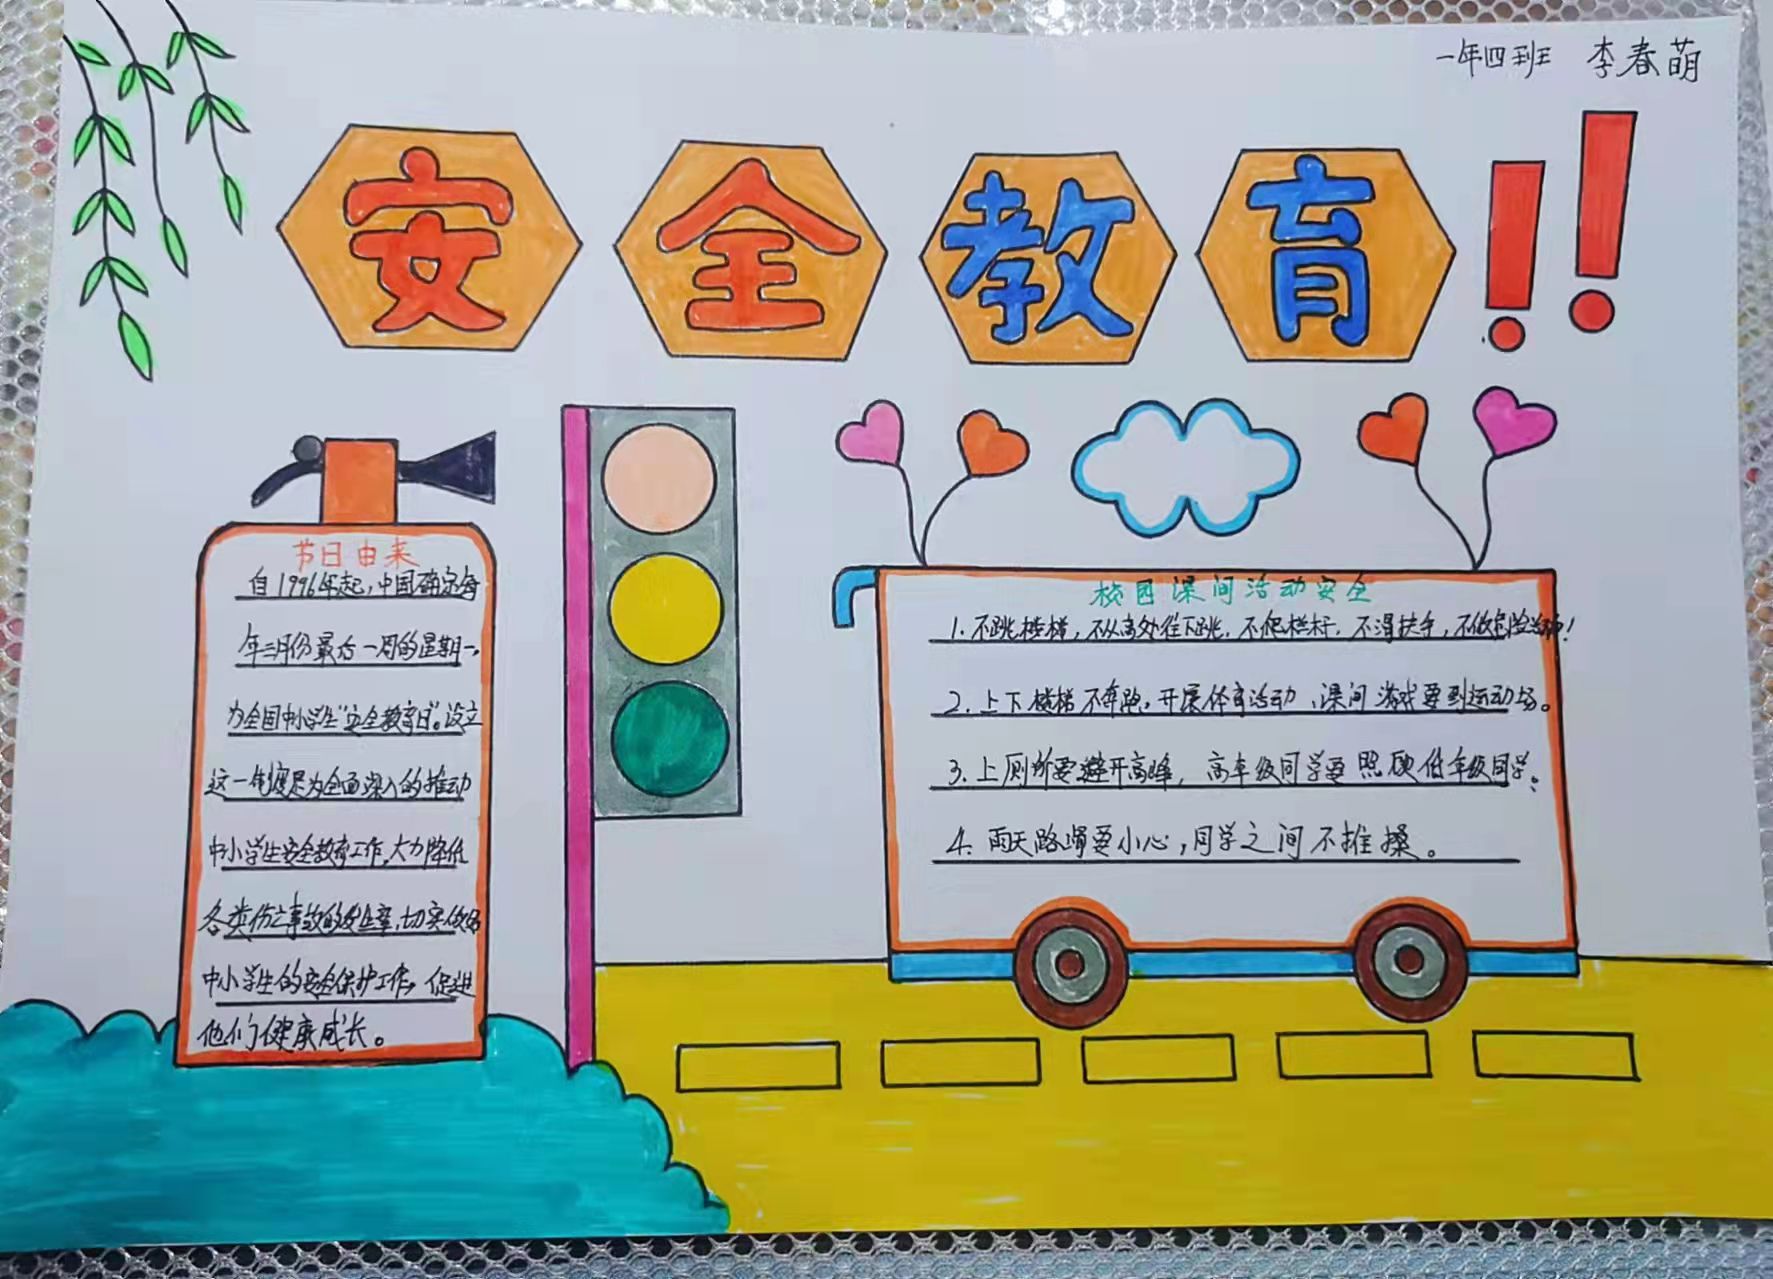 一年四班 李春萌
安全教育!!
节日由来
自1996年起,中国确定每
年三月份最后一周的星期一,
为全国中小学生"安全教育日"。设立
这一制度是为全面深入的推动
中小学生安全教育工作,大力降低
各类伤亡事故的发生率,切实做好
中小学生的安全保护工作,促进
他们健康成长。
校园课间活动安全
1.不跳楼梯,不从高处往下跳,不爬栏杆,不滑扶手,不做危险游戏!
2.上下楼梯不奔跑,开展体育活动、课间游戏要到运动场。
3.上厕所要避开高峰,高年级同学要照顾低年级同学;
4.雨天路滑要小心,同学之间不推搡。